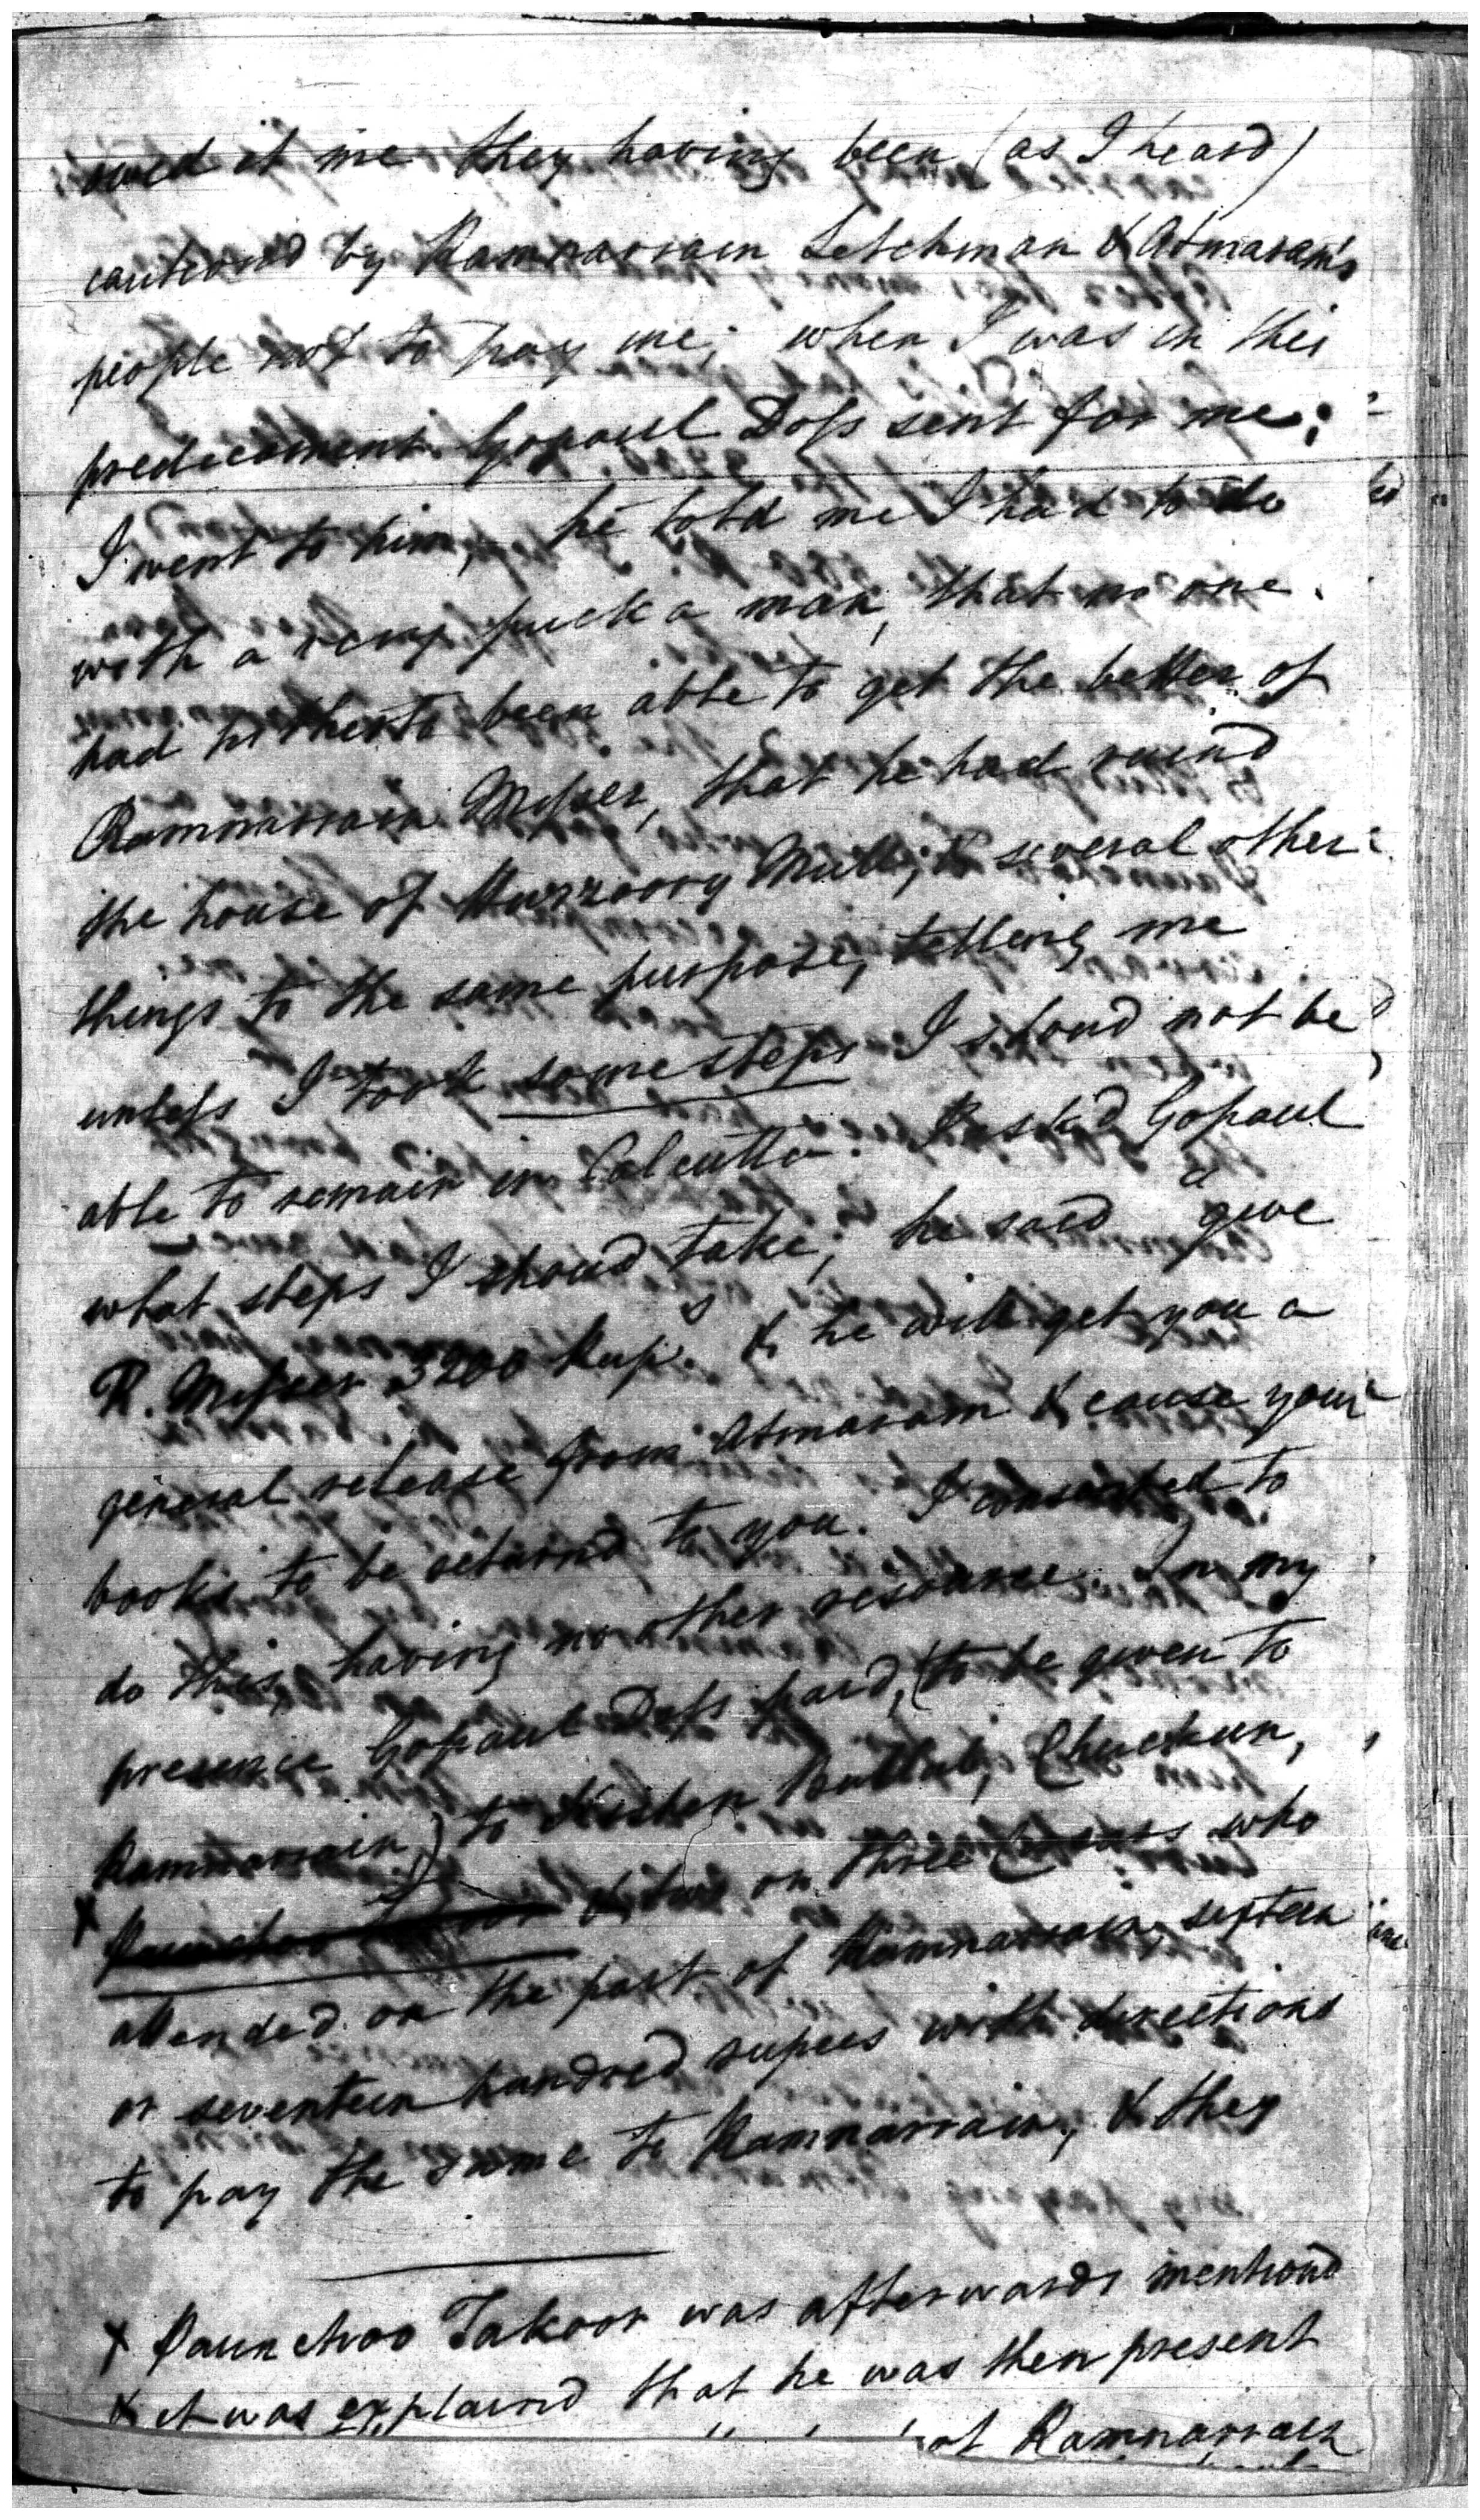 owed it me they having been (as I heard)
cautiond by Ramnarrain Letchman & Atmaram's
people not to pay me; when I was in this
predicament Gopaul Doss sent for me;
I went to him, he told me I had to do
with a very pucka man, that no one
had hitherto been able to get the better of
Ramnarrain Misser, that he had ruind
the house of Huzzoory Mull, & several other
things to the same purpose, telling me
unless I took some steps I shoud not be
able to remain in Calcutta. I ask'd Gopaul
what steps I shoud take; he said "give
R. Misser 3200 Rups. & he will get you a
general release from Atmaram & cause your
books to be returnd to you. I consented to
do this, having no other resource. In my
presence Gopaul Doss paid, (to be given to
Ramnarrain) to Kishen Bullub, Chuckun,
x Paunchoo Takoor & two or three who
attended on the part of Ramnarrain, sixteen
or seventeen hundred rupees with directions
to pay the same to Ramnarrain, & they
x Paunchoo Takoor was afterwards mentiond
& it was explaind that he was then present
Ramnarrain